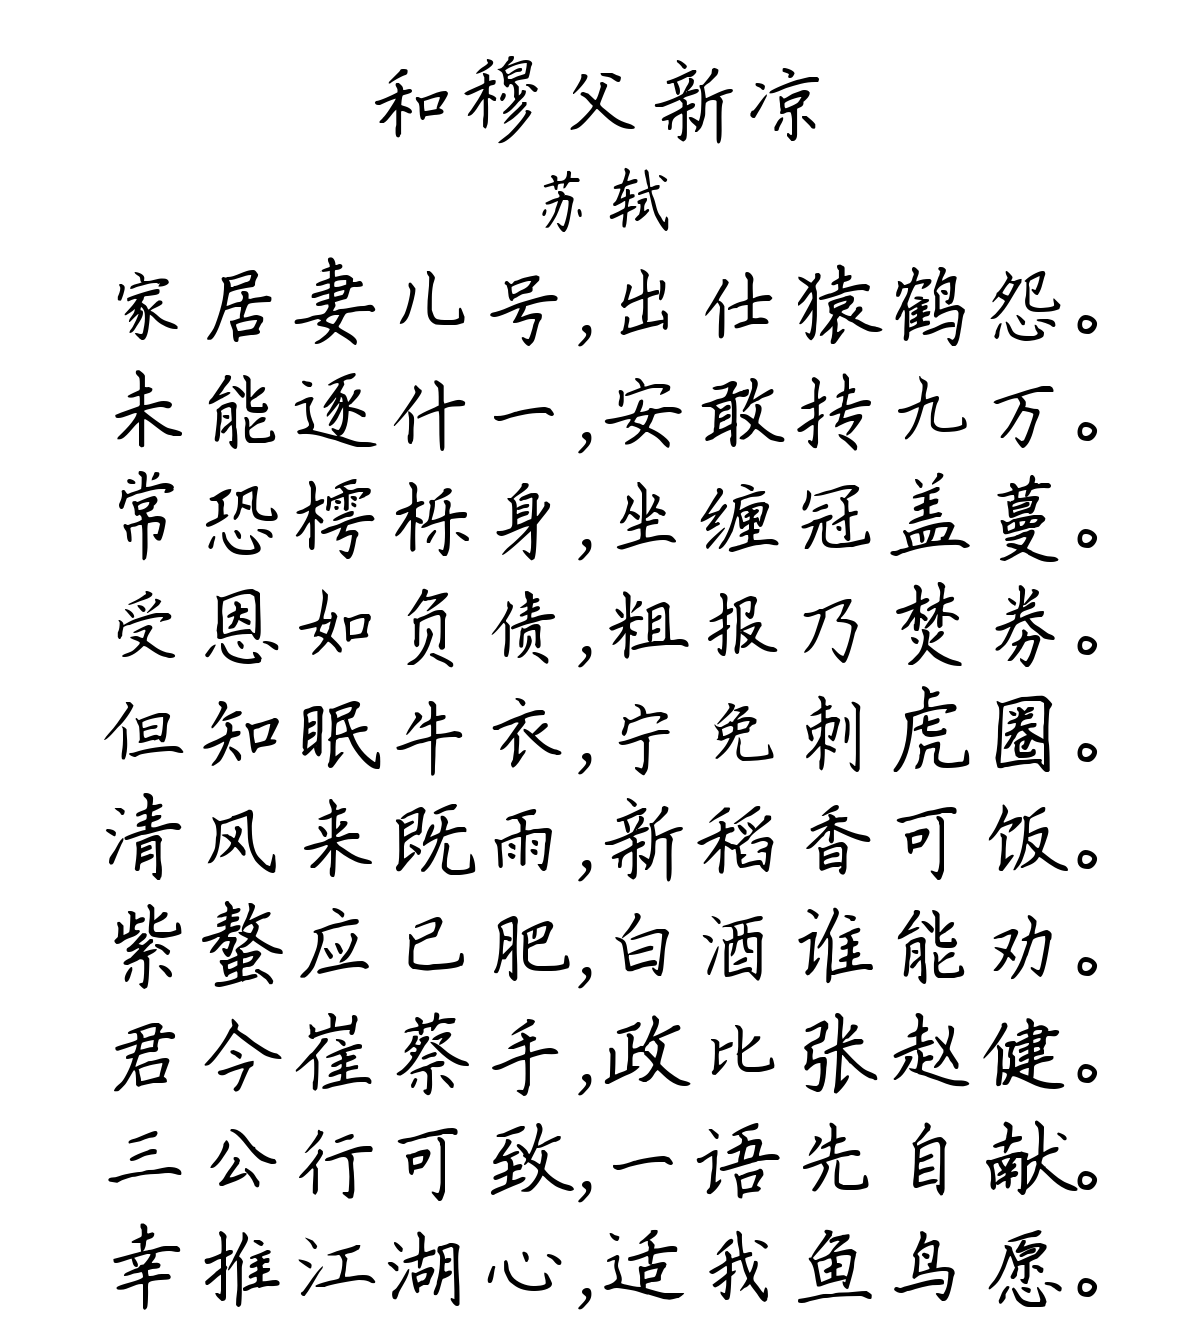 和穆父新凉
苏轼
家居妻儿号,出仕猿鹤怨。
未能逐什一,安敢抟九万。
常恐樗栎身,坐缠冠盖蔓。
受恩如负债,粗报乃焚券。
但知眠牛衣,宁免刺虎圈。
清风来既雨,新稻香可饭。
紫螯应已肥,白酒谁能劝。
君今崔蔡手,政比张赵健。
三公行可致,一语先自献。
幸推江湖心,适我鱼鸟愿。